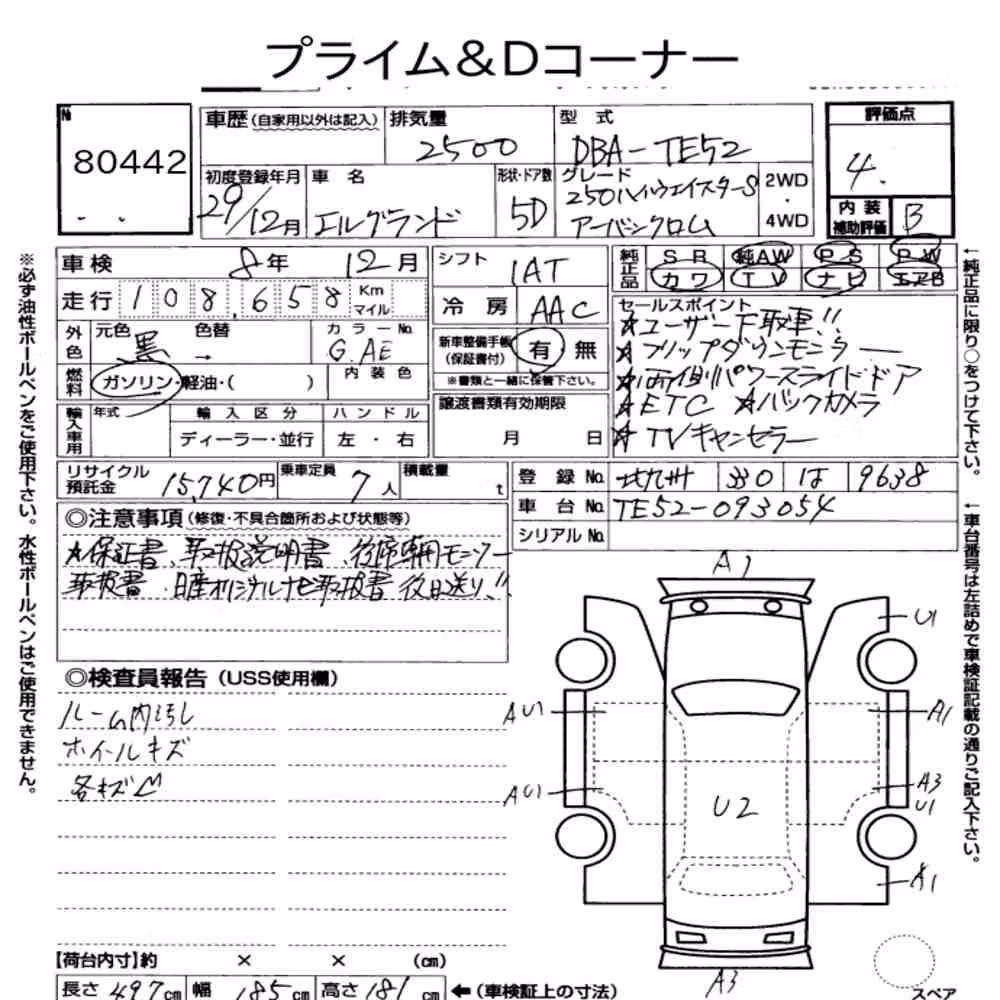 プライム&Dコーナー
№
80442
車歴(自家用以外は記入)
排気量
2500
型式
DBA-TE52
評価点
4.
初度登録年月
29/12月
車名
エルグランド
形状・ドア数
5D
グレード
250ハイウェイスターS
アーバンクロム
2WD
・
4WD
内装
補助評価
B
車検
8年 12月
シフト
1AT
純正品
SR 純AW PS PW
カワ TV ナビ エアB
走行 108,658 Km マイル
冷房 AAC
セールスポイント
★ユーザー下取車!!
★フリップダウンモニター
★両側パワースライドドア
★ETC ★バックカメラ
★TVキャンセラー
外色
元色
黒
色替
→
カラーNo.
G.AE
新車整備手帳
(保証書付)
有 無
※書類と一緒に保管下さい。
燃料
ガソリン・軽油・( )
内装色
輸入車用
年式
輸入区分
ハンドル
ディーラー・並行
左・右
譲渡書類有効期限
月 日
リサイクル
預託金
15,740円
乗車定員
7人
積載量
t
登録No. 北九州 330 は 9638
車台No. TE52-093054
シリアルNo.
◎注意事項(修復・不具合箇所および状態等)
★保証書、取扱説明書、後席専用モニター
取扱書、日産オリジナルナビ取扱書 後日送り!!
◎検査員報告(USS使用欄)
ルーム内汚レ
ホイールキズ
各キズ凹
A1
U1
AU1
A1
AU1
A3
U1
U2
A1
A3
スペア
【荷台内寸】約 × × (cm)
長さ 497cm 幅 185cm 高さ 181cm ←(車検証上の寸法)
※必ず油性ボールペンをご使用下さい。水性ボールペンはご使用できません。
←純正品に限り○をつけて下さい。
←車台番号は左詰めで車検証記載の通りご記入下さい。